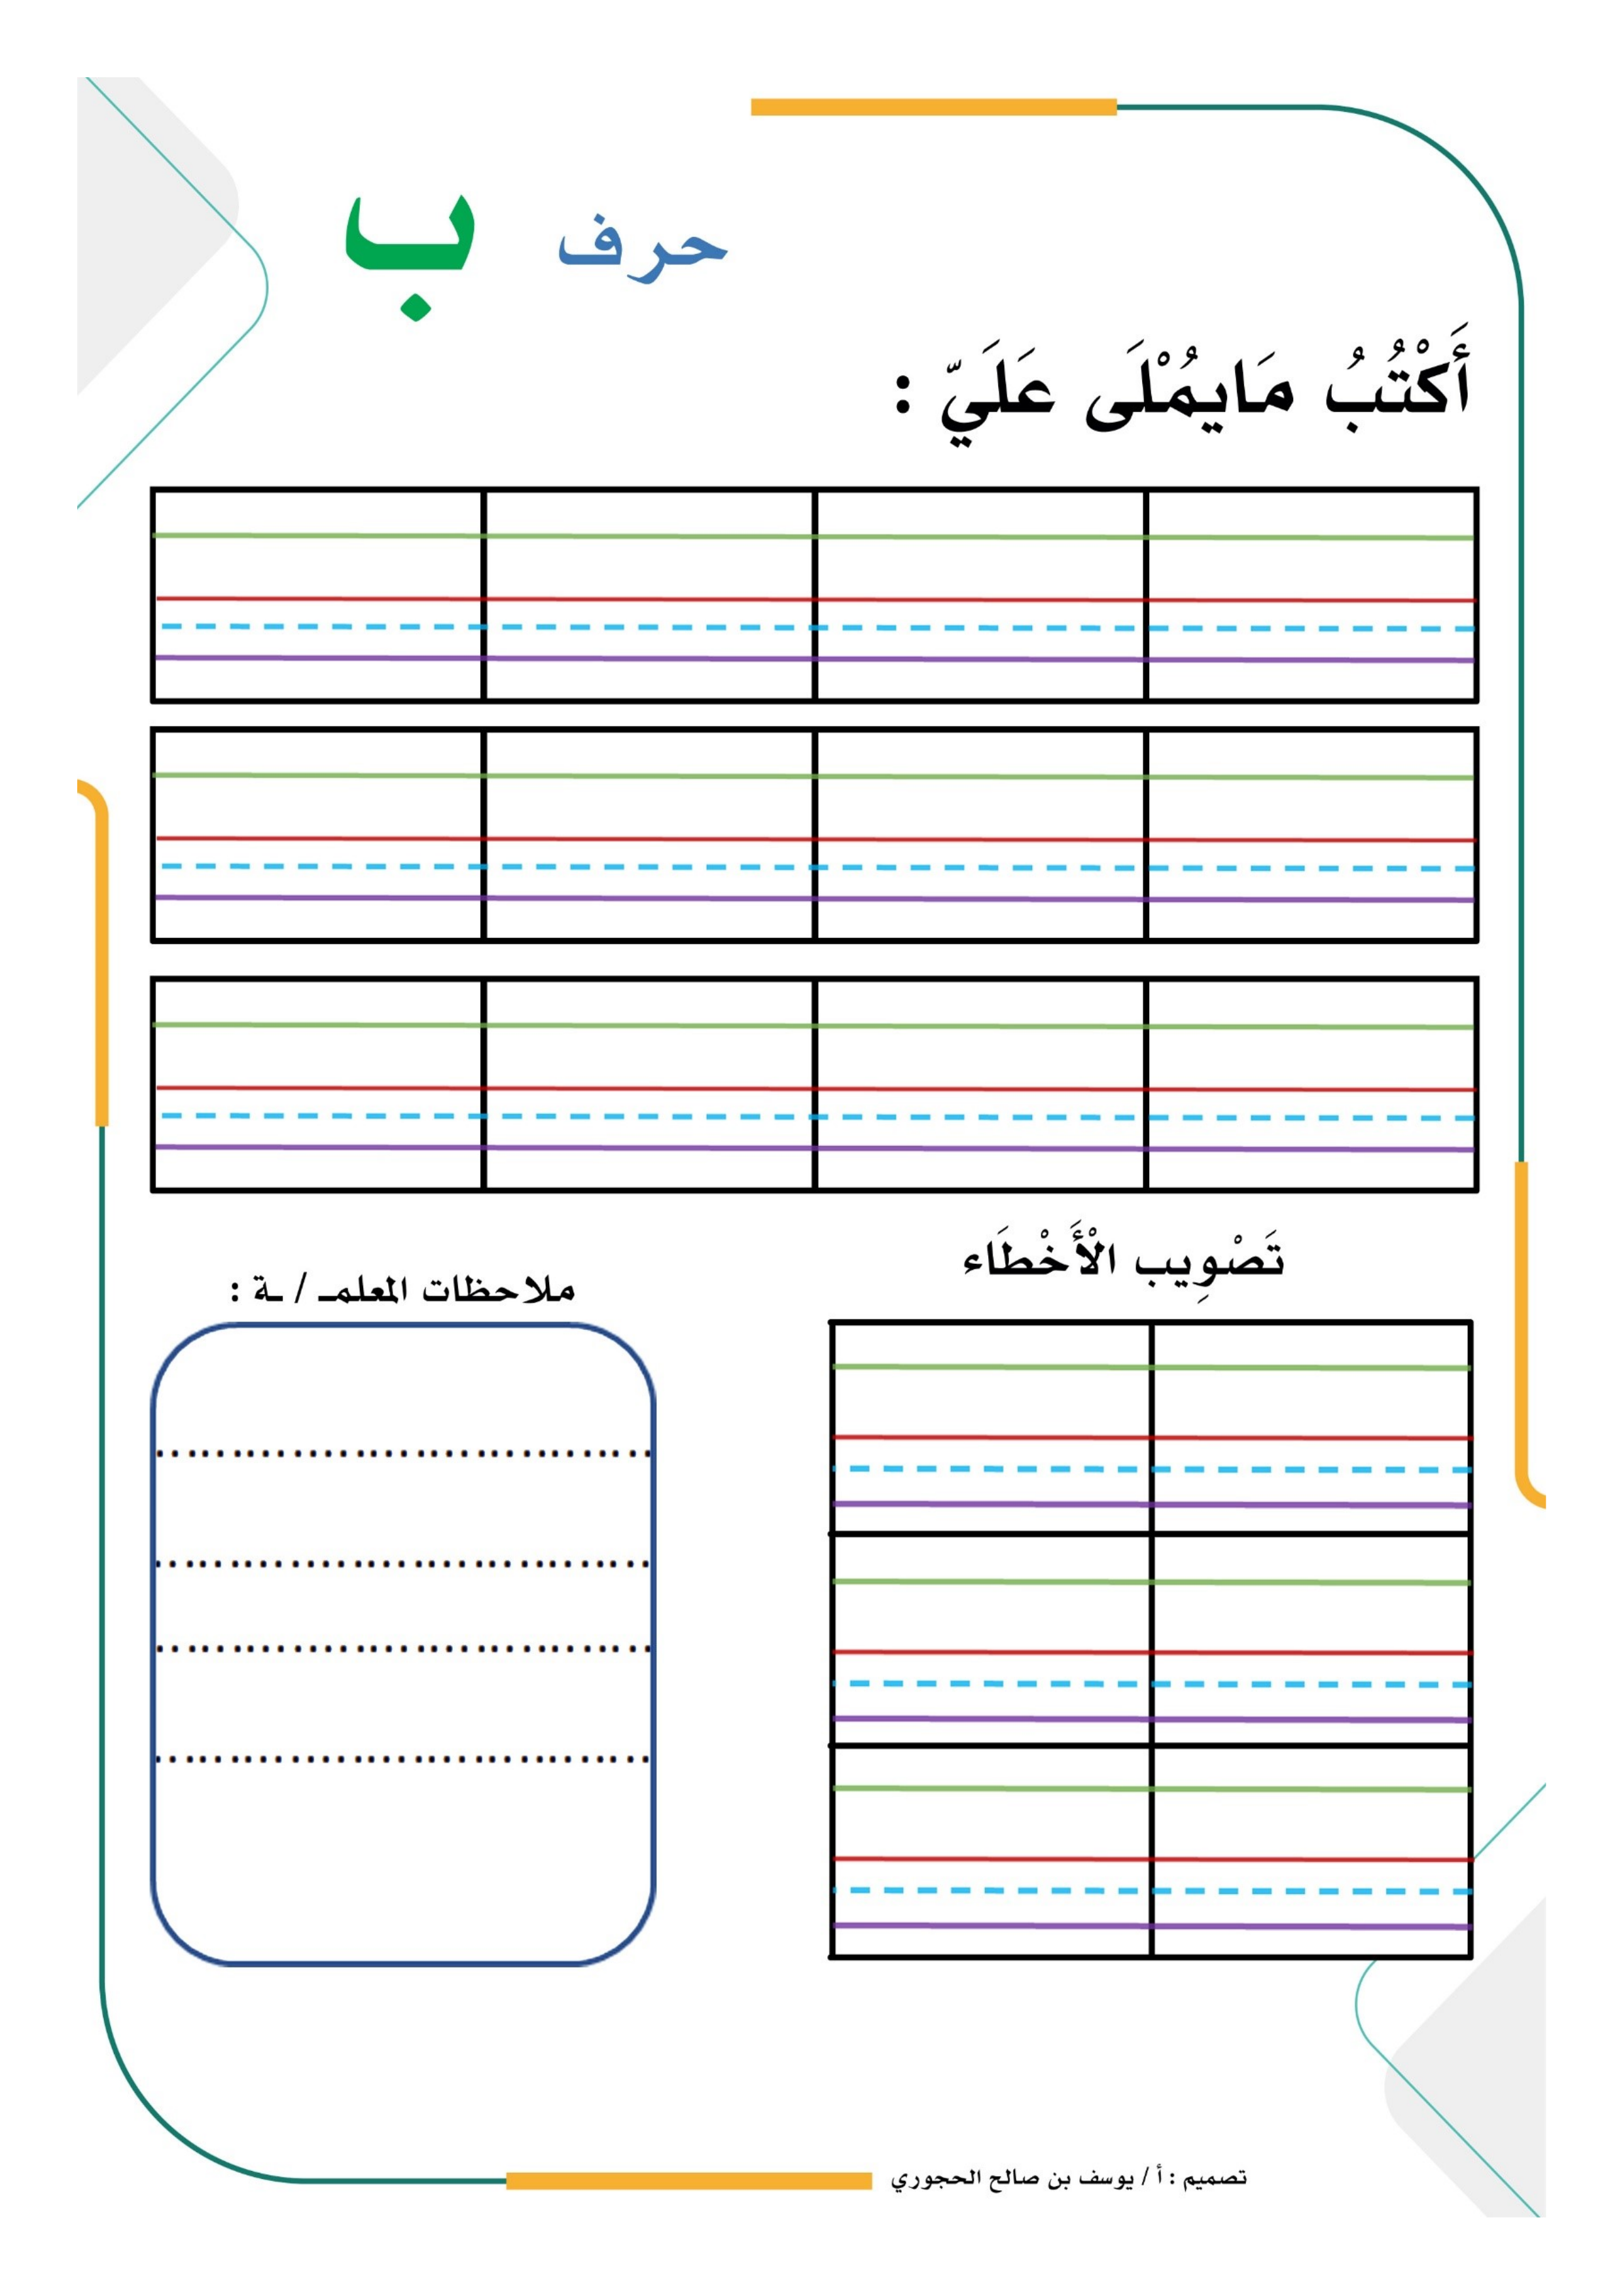 حرف ب
أَكْتُبُ مَايُمْلَى عَلَيّ :
تَصْوِيب الْأَخْطَاء
ملاحظات المعلمـ / ـة :
تصميم : أ / يوسف بن صالح الحجوري